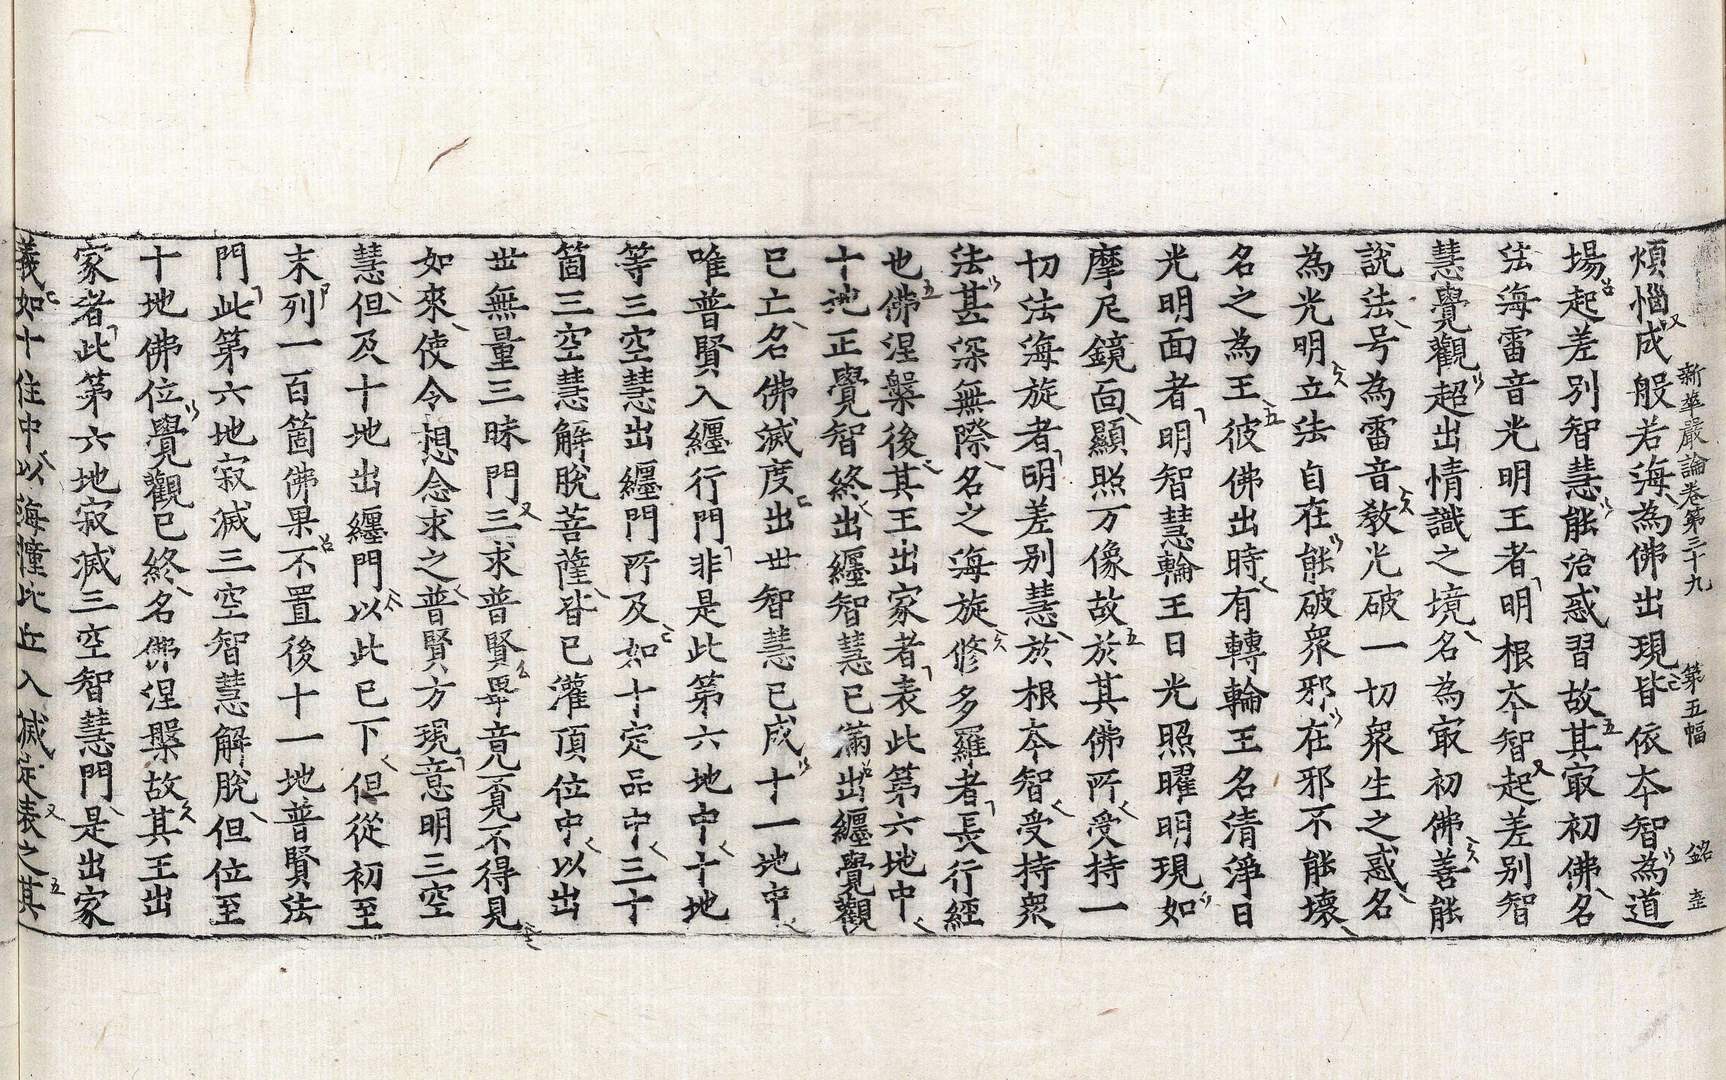 新華嚴論卷第三十九 第五幅 銘 立
煩惱成般若海為佛出現皆依夲智為道
場起差別智慧能治惑習故其冣初佛名
法海雷音光明王者明根夲智起差別智
慧覺觀超出情識之境名為冣初佛善能
說法号為雷音敎光破一切衆生之惑名
為光明立法自在能破衆邪在邪不能壞
名之為王彼佛出時有轉輪王名清淨日
光明面者明智慧輪王日光照曜明現如
摩尼鏡面顯照万像故於其佛所受持一
切法海旋者明差別慧於根夲智受持衆
法甚深無際名之海旋修多羅者長行經
也佛涅槃後其王出家者表此第六地中
十地正覺智終出纏智慧已滿出纏覺觀
已亡名佛滅度出世智慧已成十一地中
唯普賢入纏行門非是此第六地中十地
等三空慧出纏門所及如十定品中三十
箇三空慧解脫菩薩皆已灌頂位中以出
世無量三昧門三求普賢畢竟覓不得見
如來使令想念求之普賢方現意明三空
慧但及十地出纏門以此已下但從初至
末列一百箇佛果不置後十一地普賢法
門此第六地寂滅三空智慧解脫但位至
十地佛位覺觀已終名佛涅槃故其王出
家者此第六地寂滅三空智慧門是出家
義如十住中以海幢比丘入滅定表之其